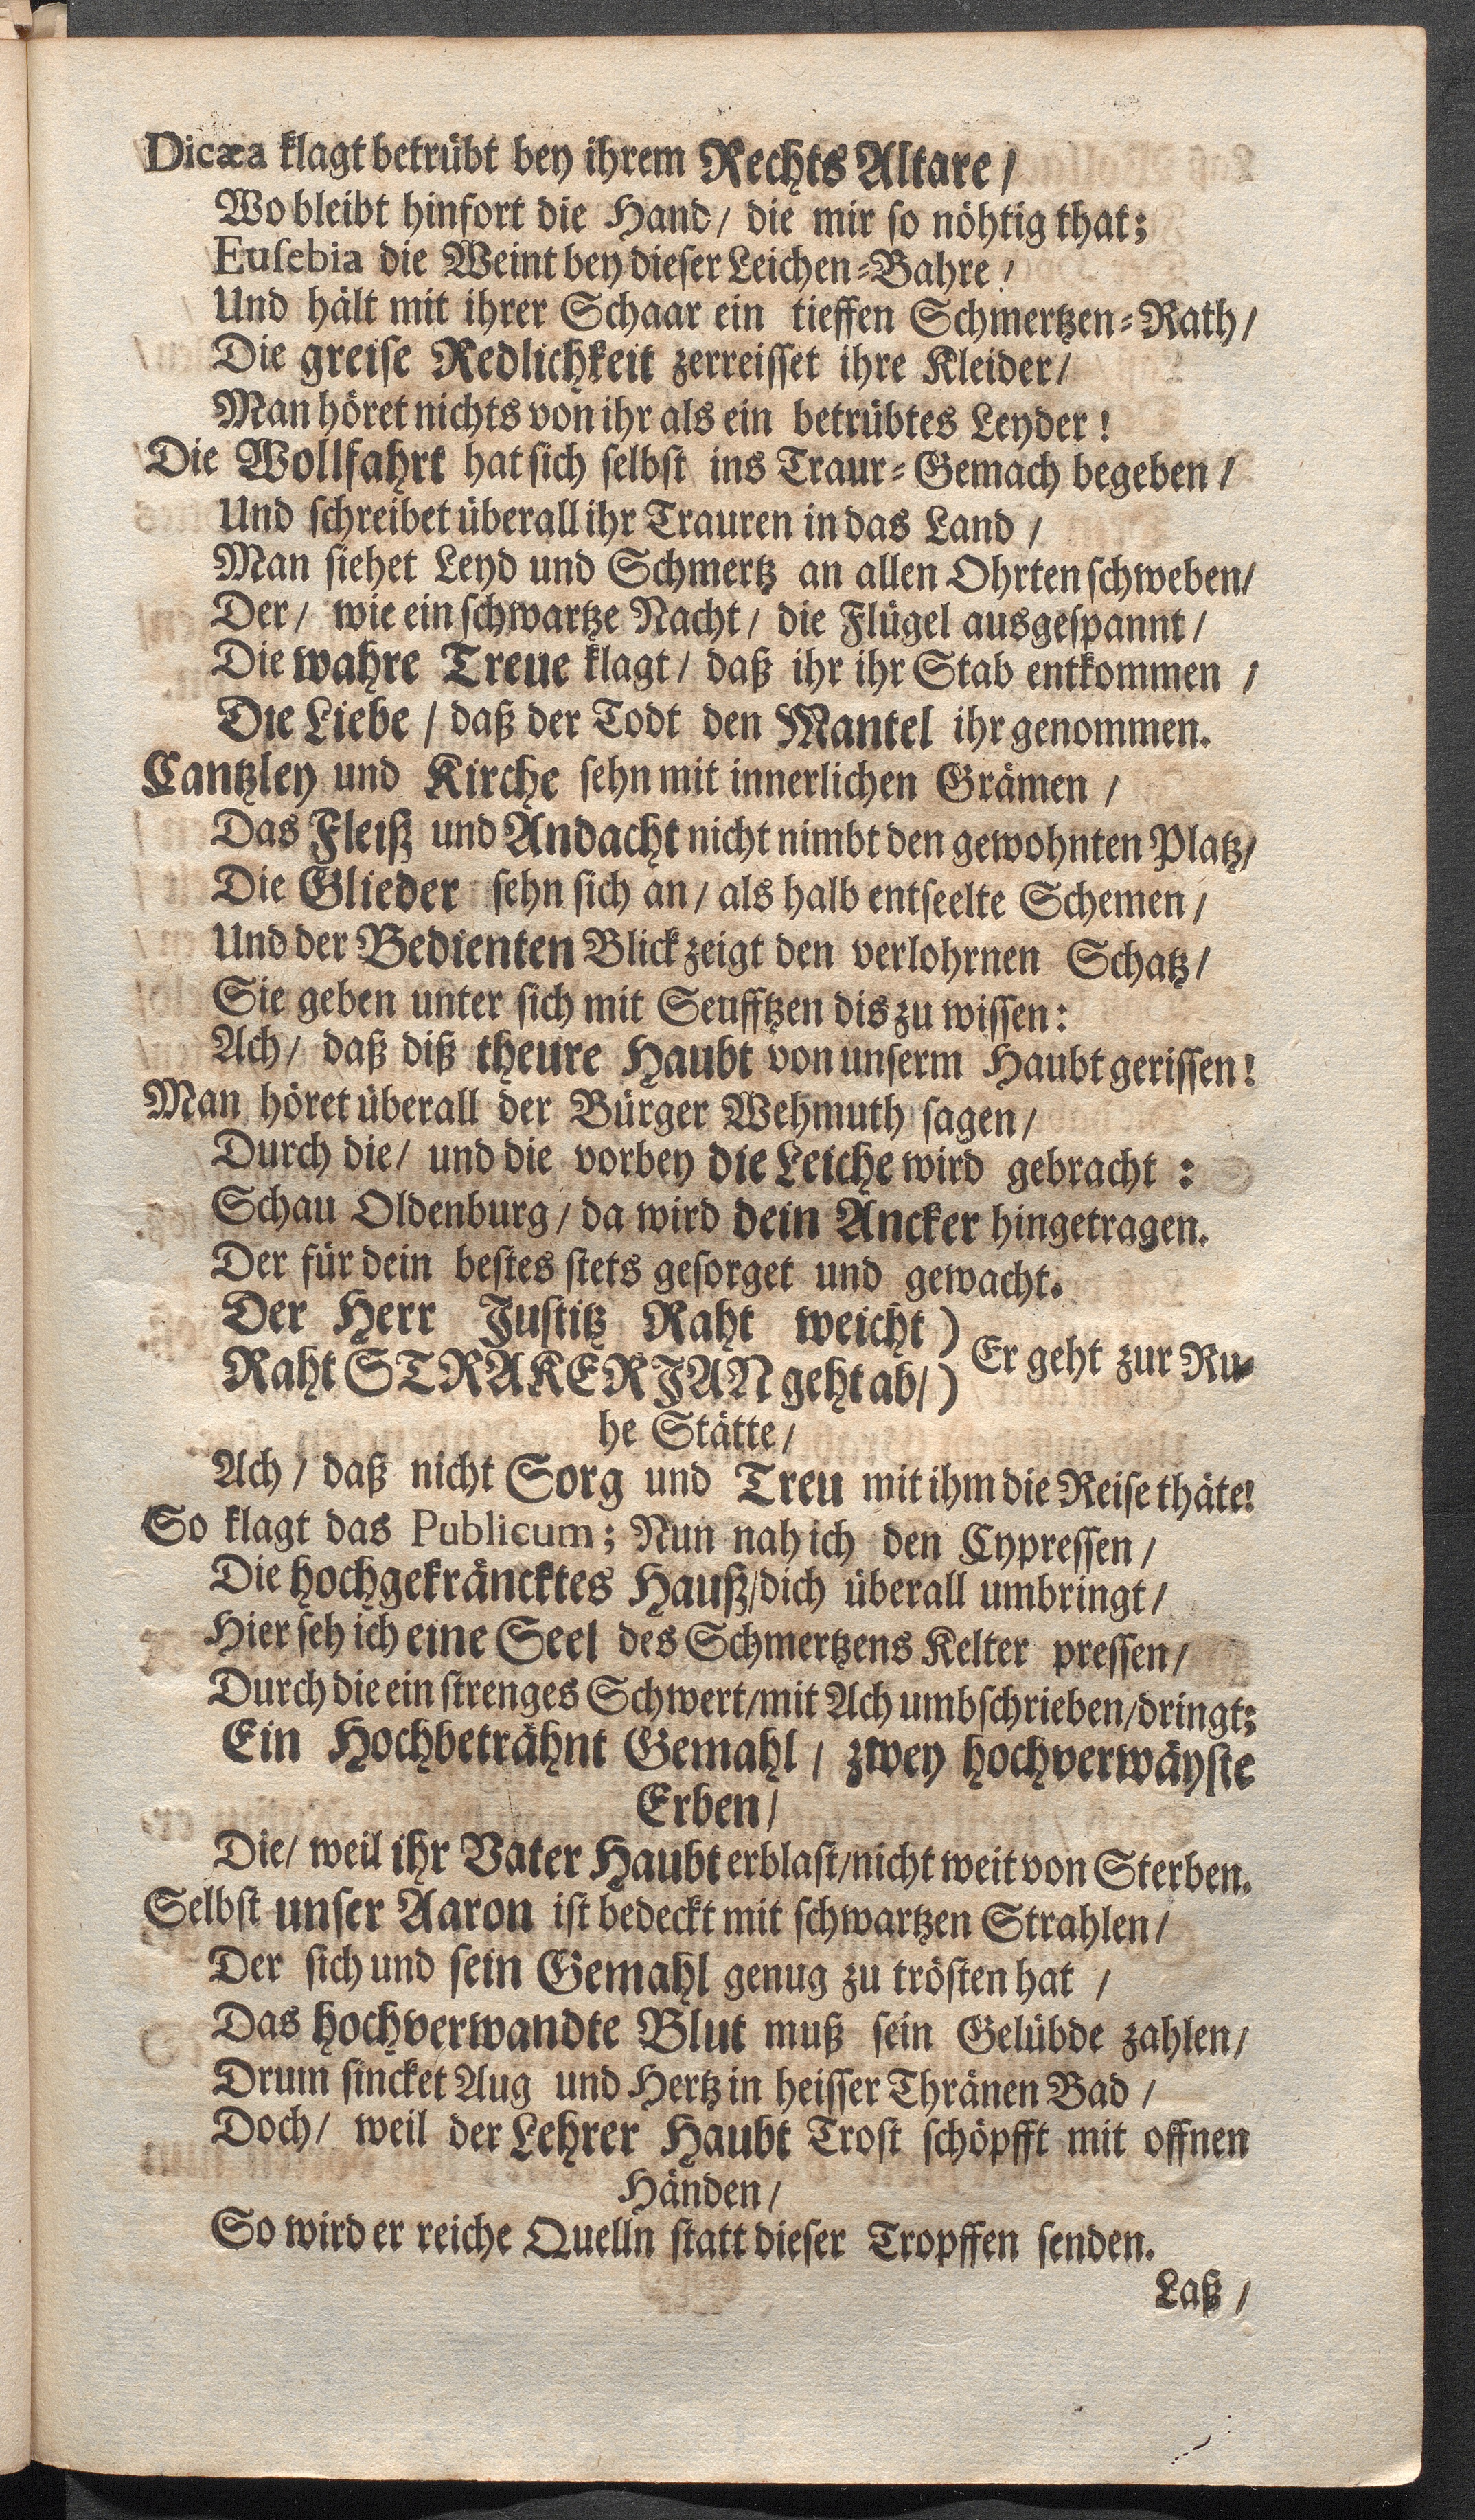 Dicæa klagt betrübt bey ihrem Rechts Altare /
Wo bleibt hinfort die Hand / die mir so nöhtig that;
Eusebia die Weint bey dieser Leichen-Bahre /
Und hält mit ihrer Schaar ein tieffen Schmertzen-Rath /
Die greise Redlichkeit zerreisset ihre Kleider /
Man höret nichts von ihr als ein betrübtes Leyder!
Die Wollfahrt hat sich selbst ins Traur-Gemach begeben /
Und schreibet überall ihr Trauren in das Land /
Man siehet Leyd und Schmertz an allen Ohrten schweben /
Der / wie ein schwartze Nacht / die Flügel ausgespannt /
Die wahre Treue klagt / daß ihr ihr Stab entkommen /
Die Liebe / daß der Todt den Mantel ihr genommen.
Cantzley und Kirche sehn mit innerlichen Grämen /
Das Fleiß und Andacht nicht nimbt den gewohnten Platz /
Die Glieder sehn sich an / als halb entseelte Schemen /
Und der Bedienten Blick zeigt den verlohrnen Schatz /
Sie geben unter sich mit Seufftzen dis zu wissen:
Ach / daß diß theure Haubt von unserm Haubt gerissen!
Man höret überall der Bürger Wehmuth sagen /
Durch die / und die vorbey die Leiche wird gebracht :
Schau Oldenburg / da wird dein Ancker hingetragen.
Der für dein bestes stets gesorget und gewacht.
Der Herr Justitz Raht weicht )
Raht STRAKERJAN geht ab / ) Er geht zur Ru-
he Stätte /
Ach / daß nicht Sorg und Treu mit ihm die Reise thäte!
So klagt das Publicum; Nun nah ich den Cypressen /
Die hochgekräncktes Hauß / dich überall umbringt /
Hier seh ich eine Seel des Schmertzens Kelter pressen /
Durch die ein strenges Schwert / mit Ach umbschrieben / dringt;
Ein Hochbeträhnt Gemahl / zwey hochverwäyste
Erben /
Die / weil ihr Vater Haubt erblast / nicht weit von Sterben.
Selbst unser Aaron ist bedeckt mit schwartzen Strahlen /
Der sich und sein Gemahl genug zu trösten hat /
Das hochverwandte Blut muß sein Gelübde zahlen /
Drum sincket Aug und Hertz in heisser Thränen Bad /
Doch / weil der Lehrer Haubt Trost schöpfft mit offnen
Händen /
So wird er reiche Quelln statt dieser Tropffen senden.
Laß /